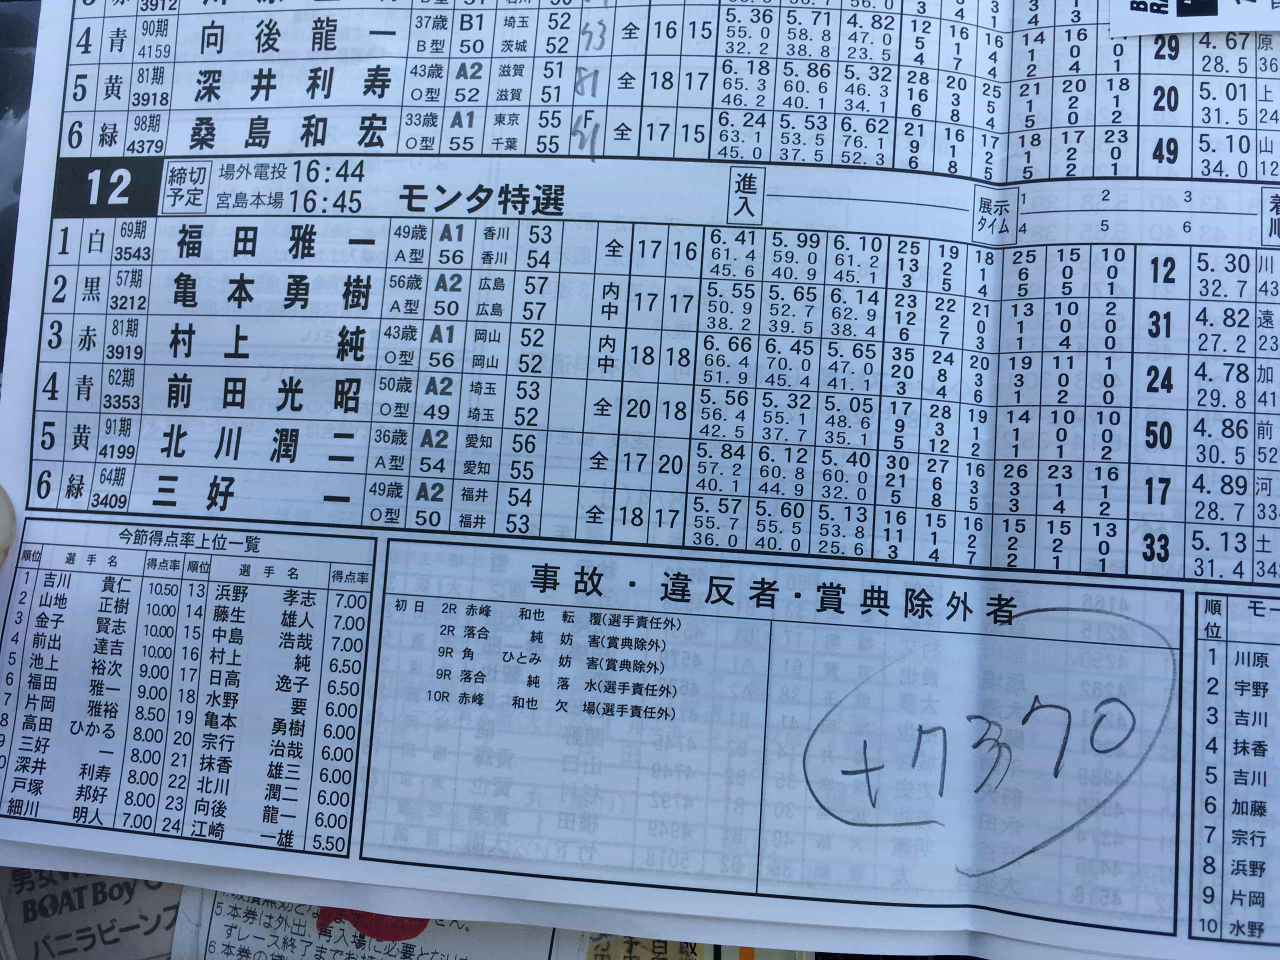 4 青 90期 4159 向後龍一 37歳 B型 B1 50 埼玉 茨城 52 52 53 全 16 15 5.36 55.0 32.2 5.71 58.8 38.8 4.82 47.0 23.5 29 4.67 28.5
5 黄 81期 3918 深井利寿 43歳 O型 A2 52 滋賀 滋賀 51 51 81 全 18 17 6.18 65.3 46.2 5.86 60.6 40.1 5.32 46.3 34.1 28 16 3 20 3 8 25 8 4 21 1 5 20 2 0 18 1 2 20 5.01 31.5
6 緑 98期 4379 桑島和宏 33歳 O型 A1 55 東京 千葉 55 55 F 51 全 17 15 6.24 63.1 45.0 5.53 53.5 37.5 6.62 76.1 52.3 21 9 6 16 1 8 17 2 5 18 1 5 17 2 2 23 0 1 49 5.10 34.0
12 締切予定 場外電投 16:44 宮島本場 16:45 モンタ特選 進入 展示タイム 1 2 3 4 5 6
1 白 69期 3543 福田雅一 49歳 A型 A1 56 香川 香川 53 54 全 17 16 6.41 61.4 45.6 5.99 59.0 40.9 6.10 61.2 45.1 25 13 3 19 2 5 18 1 4 25 6 5 15 0 5 10 0 1 12 5.30 32.7
2 黒 57期 3212 亀本勇樹 56歳 A型 A2 50 広島 広島 57 57 内中 17 17 5.55 50.9 38.2 5.65 52.7 39.5 6.14 62.9 38.4 23 12 6 22 2 7 21 0 3 13 1 1 10 4 0 2 0 0 31 4.82 27.2
3 赤 81期 3919 村上純 43歳 O型 A1 56 岡山 岡山 52 52 内中 18 18 6.66 66.4 51.9 6.45 70.0 45.4 5.65 47.0 41.1 35 20 3 24 8 4 20 3 6 19 3 1 11 0 2 1 0 0 24 4.78 29.8
4 青 62期 3353 前田光昭 50歳 O型 A2 49 埼玉 埼玉 53 52 全 20 18 5.56 56.4 42.5 5.32 55.1 37.7 5.05 48.6 35.1 17 9 5 28 3 12 19 1 2 14 1 1 10 0 0 10 0 2 50 4.86 30.5
5 黄 91期 4199 北川潤二 36歳 A型 A2 54 愛知 愛知 56 55 全 17 20 5.84 57.2 40.1 6.12 60.8 44.9 5.40 60.0 32.0 30 21 5 27 6 8 16 3 5 26 3 3 23 1 4 16 1 2 17 4.89 28.7
6 緑 64期 3409 三好一 49歳 O型 A2 50 福井 福井 54 53 全 18 17 5.57 55.7 36.0 5.60 55.5 40.0 5.13 53.8 25.6 16 11 3 15 1 4 16 2 7 15 2 2 15 2 1 13 0 1 33 5.13 31.4
今節得点率上位一覧
順位 選手名 得点率 順位 選手名 得点率
1 吉川 貴仁 10.50 13 浜野 孝志 7.00
2 山地 正樹 10.00 14 藤生 雄人 7.00
3 金子 賢志 10.00 15 中島 浩哉 7.00
4 前出 達吉 10.00 16 村上 純 6.50
5 池上 裕次 9.00 17 日高 逸子 6.50
6 福田 雅一 9.00 18 水野 要 6.00
7 片岡 雅裕 8.50 19 亀本 勇樹 6.00
8 高田 ひかる 8.00 20 宗行 治哉 6.00
9 三好 一 8.00 21 抹香 雄三 6.00
深井 利寿 8.00 22 北川 潤二 6.00
戸塚 邦好 8.00 23 向後 龍一 6.00
細川 明人 7.00 24 江崎 一雄 5.50
事故・違反者・賞典除外者
初日 2R 赤峰 和也 転覆(選手責任外)
2R 落合 純 妨害(賞典除外)
9R 角 ひとみ 妨害(賞典除外)
9R 落合 純 落水(選手責任外)
10R 赤峰 和也 欠場(選手責任外)
+7370
順位
1 川原
2 宇野
3 吉川
4 抹香
5 吉川
6 加藤
7 宗行
8 浜野
9 片岡
10 水野
BOAT Boy
バニラビーンズ
5.本券は外出、再入場に必要と